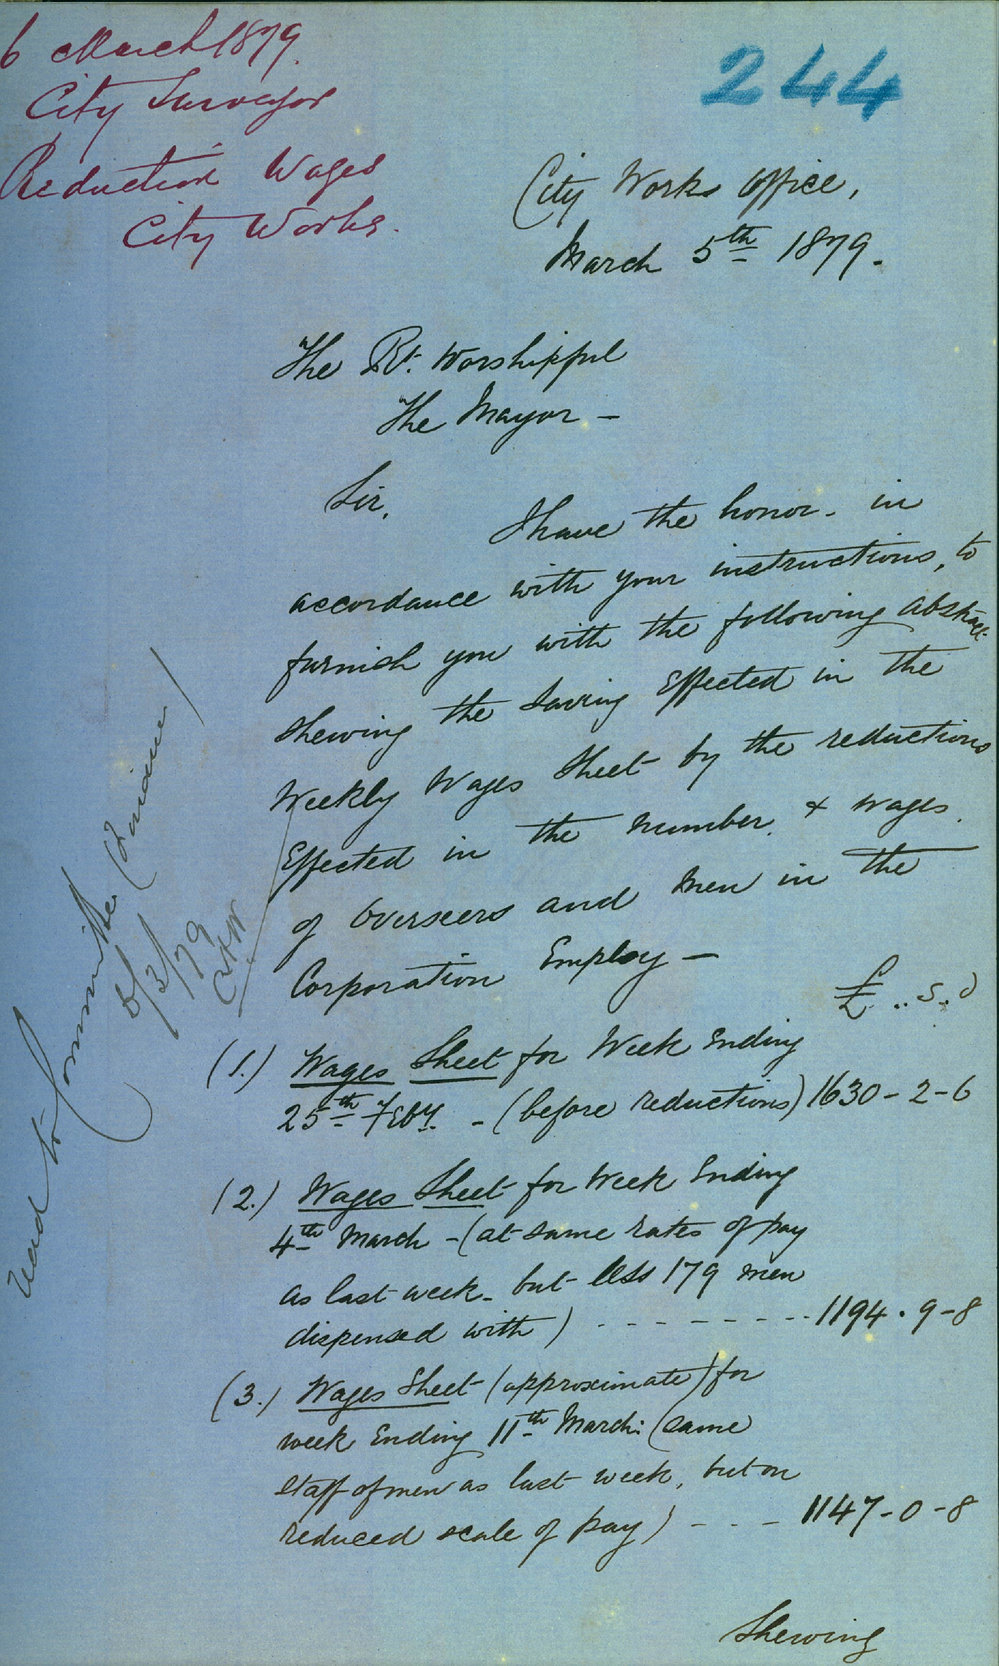 6 March 1879.
City Surveyor
Reduction Wages
City Works.
244
City Works Office,
March 5th 1879.
The Rt. Worshipful
The Mayor —
Sir,
I have the honor - in
accordance with your instructions, to
furnish you with the following abstract
shewing the saving Effected in the
Weekly Wages Sheet by the reductions
Effected in the number & wages
of Overseers and Men in the
Corporation Employ —
£ .. s. d
(1.) Wages Sheet for Week Ending
25th Feby. - (before reductions) 1630-2-6
(2.) Wages Sheet for Week Ending
4th March - (at same rates of pay
as last week - but less 179 men
dispensed with) - - - - - - - - 1194.9-8
(3.) Wages Sheet (approximate) for
week Ending 11th March: (same
staff of men as last week, but on
reduced scale of pay) - - - 1147-0-8
Shewing
to Committee (Finance)
6/3/79